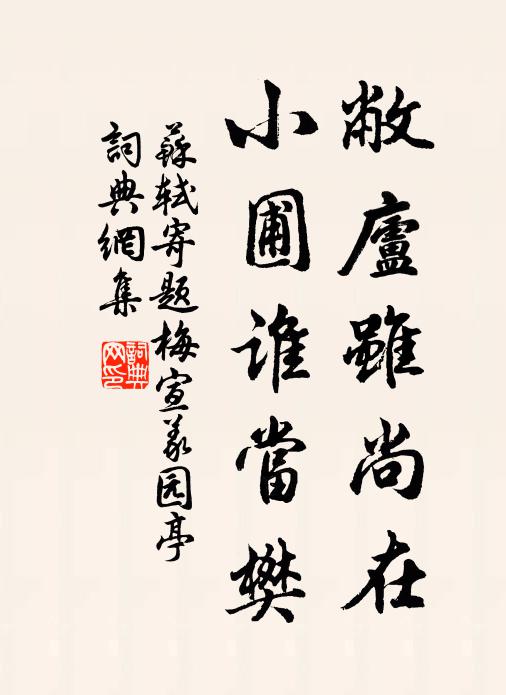 敝廬雖尚在
小圃誰當樊
蘇轼寄题梅宣義园亭
詞典網集
詞典網印